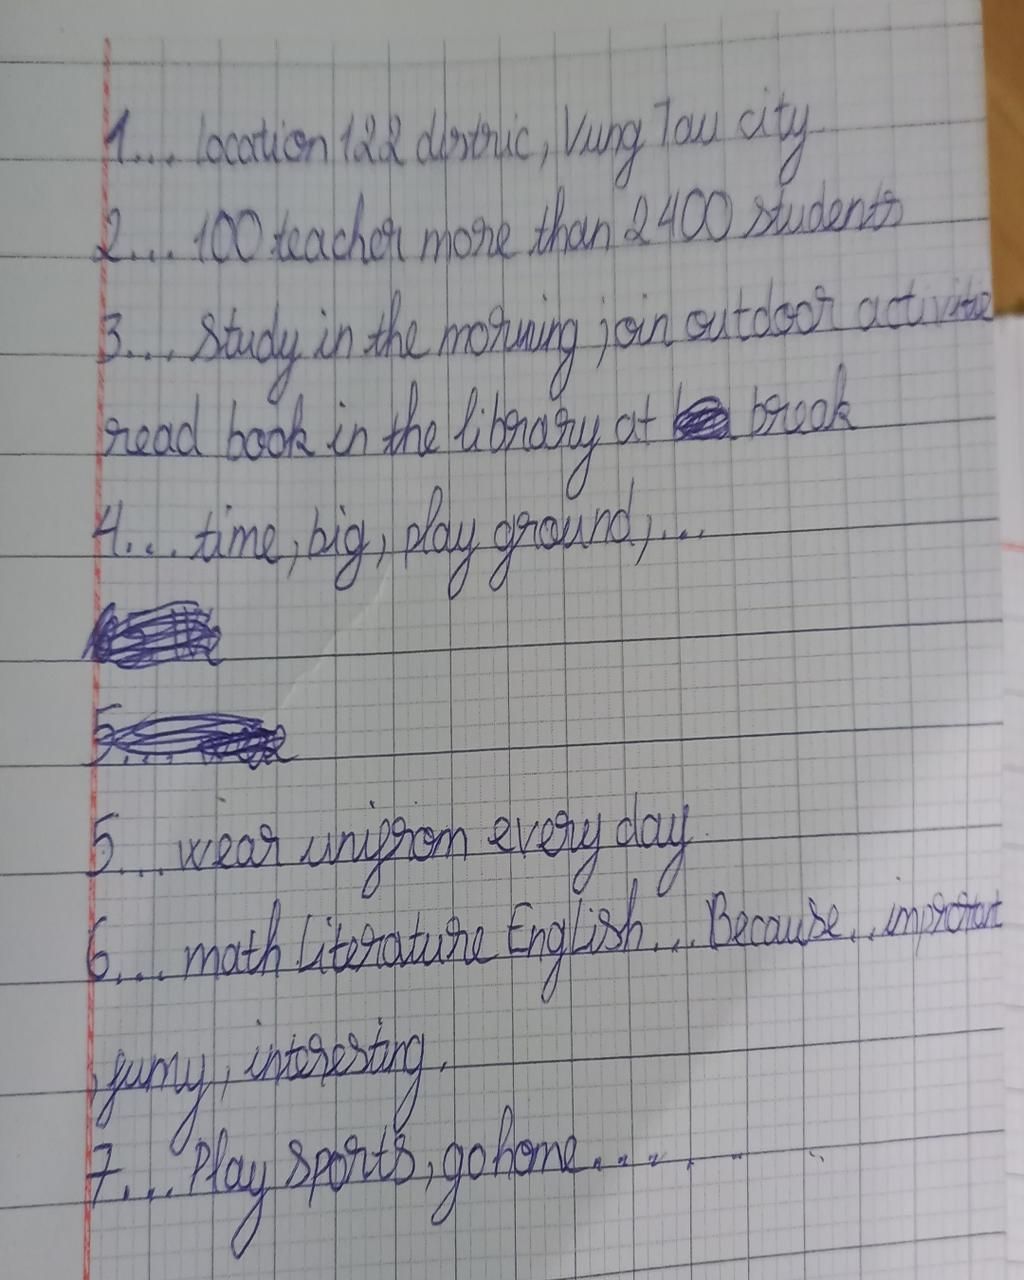 1... location 122 distric, Vung Tau city
2... 100 teacher more than 2400 students
3... Study in the morning join outdoor activitie
read book in the library at break
4... time, big, play ground,...
5....
5... wear unifrom every day
6... math Literature English... Because.. imprortant
, fumy, interesting.
7... Play sports, go home.......